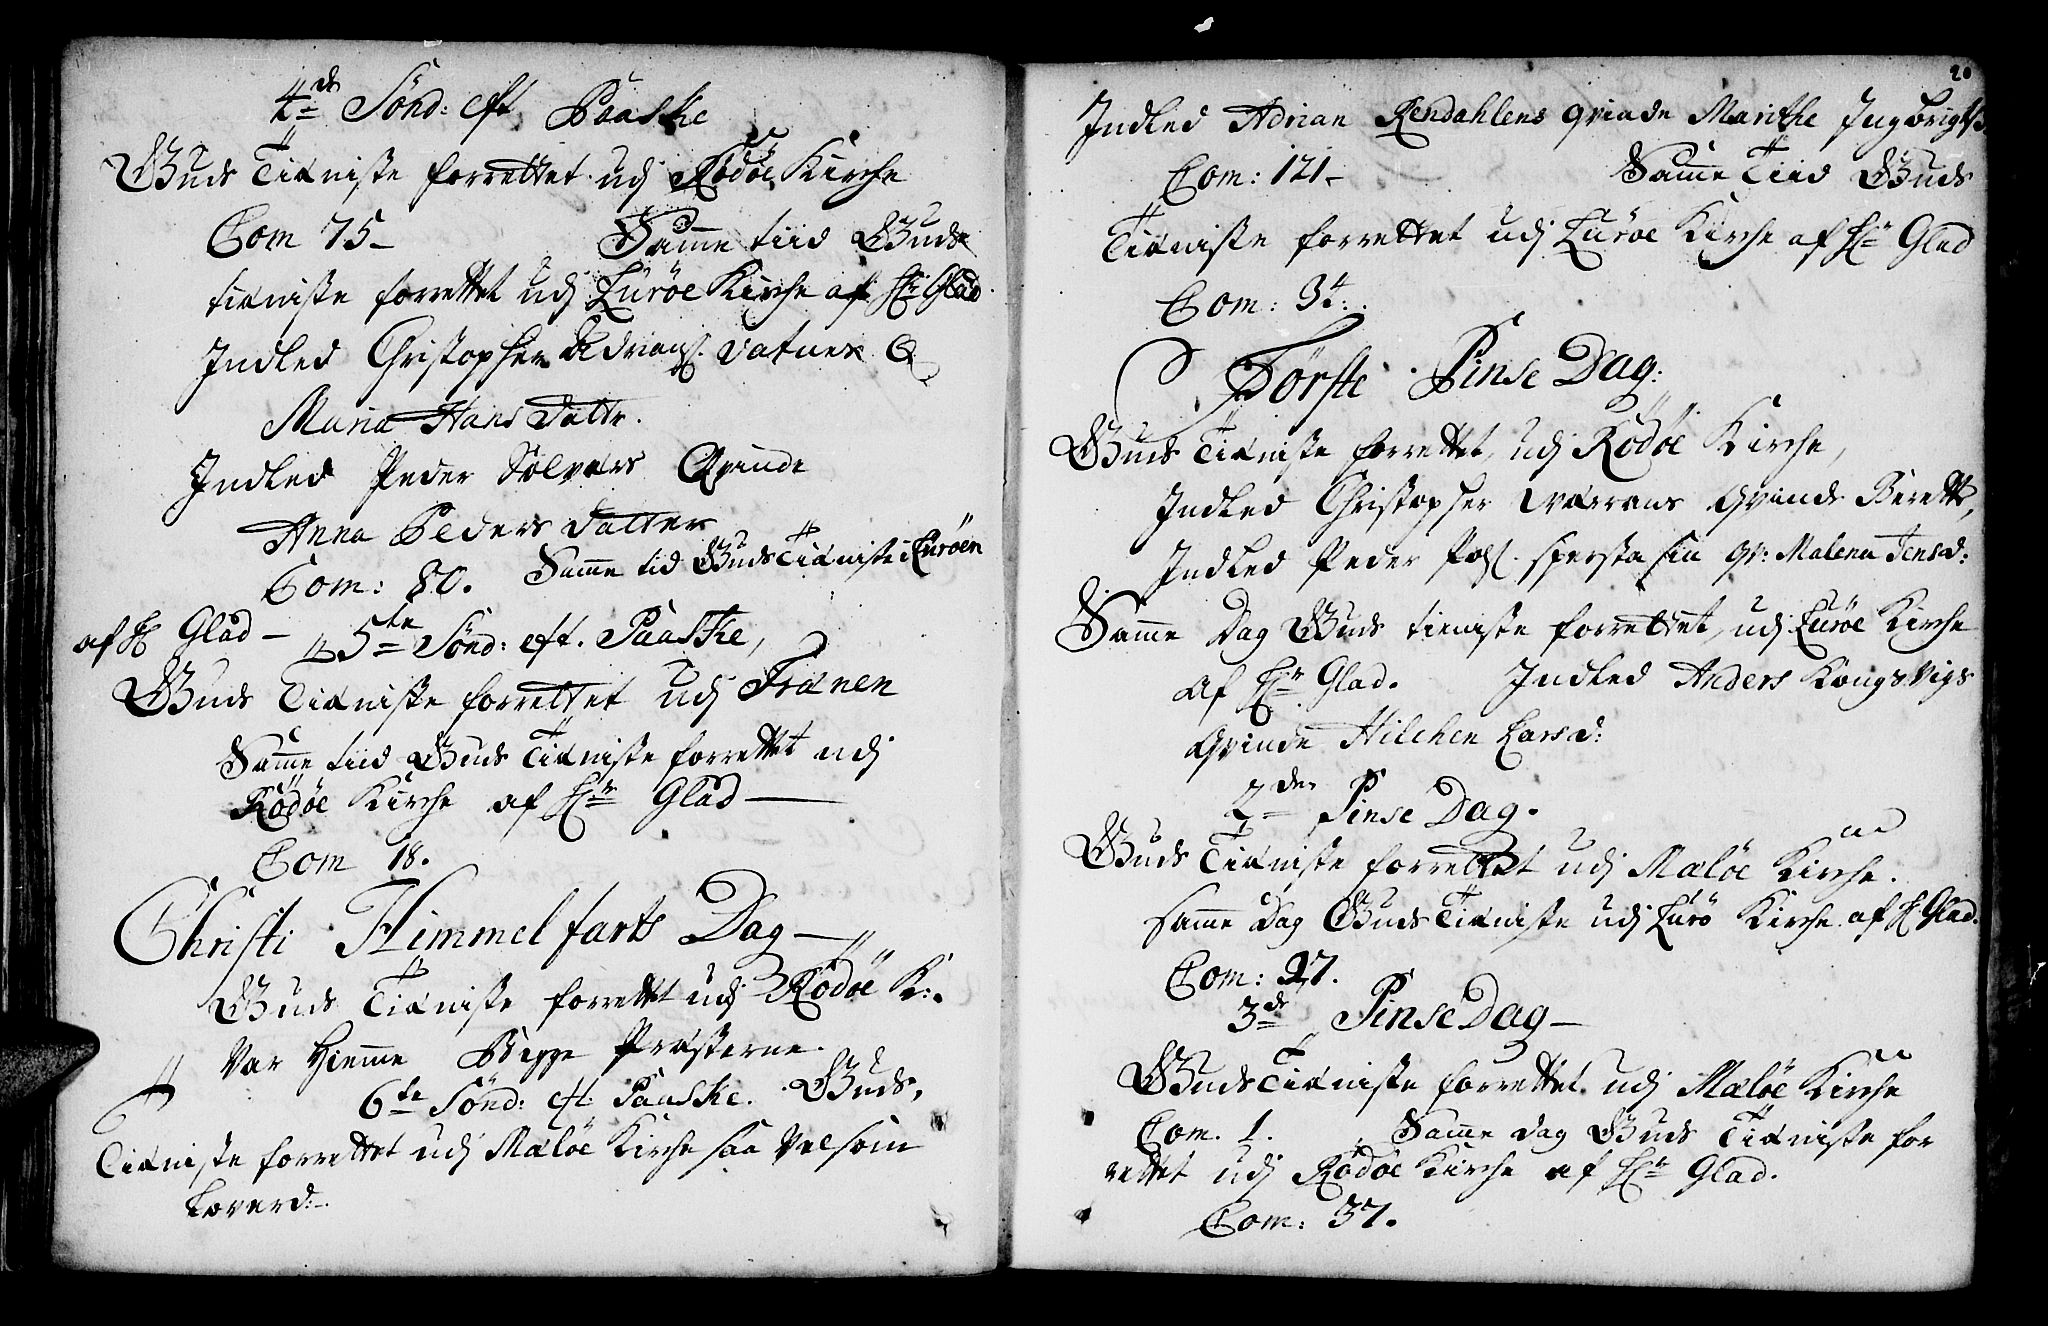 4de Sönd: eft Paaske
Guds Tieniste forrettet udj Rödöe Kirche
Com 75 –
Samme tiid Guds
tieniste forrettet udj Luröe Kirche af Hr Glad
Indled Christopher Adrians. Vatnes Q.
Maria Hans Dattr.
Indled Peder Solværs Qvinde
Anna Peders Datter
Com: 80. Samme tid Guds Tieniste i Luröen
af H Glad –
5te Sönd: eft. Paaske,
Guds Tieniste forrettet udj Trænen
Samme tiid Guds Tieniste forrettet udj
Rödöe Kirche af Hr Glad —
Com 18.
Christi Himmelfarts Dag –
Guds Tieniste forrettet udj Rödöe K:.
Var Hiemme Begge Præsterne.
6te Sönd: eft Paaske. Guds,
Tieniste forrettet udj Mælöe Kirche saa Vel som
Loverd:–
20
Indled Adrian Rendahlens qvinde Marithe Ingbrigts
Com: 121 –
Samme Tiid Guds
Tieniste forrettet udj Luröe Kirche af Hr Glad
Com: 34:
Förste Pinse Dag:
Guds Tieniste forrettet, udj Rödöe Kirche,
Indled Christopher Værrans Qvinde Berette,
Indled Peder Pols. sin Qv: Malena Jensd:
Samme Dag Guds tieniste forrettet, udj Luröe Kirche
af Hr Glad. Indled Anders Kongsvigs
Qvinde Hilchen Larsd:
2den Pinse Dag.
Guds Tieniste forrettet udj Mælöe Kirche.
samme Dag Guds Tieniste udj Lurö Kirche af H Glad.
Com: 27.
3de Pinse Dag –
Guds Tieniste forrettet udj Mælöe Kirche
Com. 1. Samme dag Guds Tieniste for
rettet udj Rödöe Kirche af Hr Glad.
Com: 37.